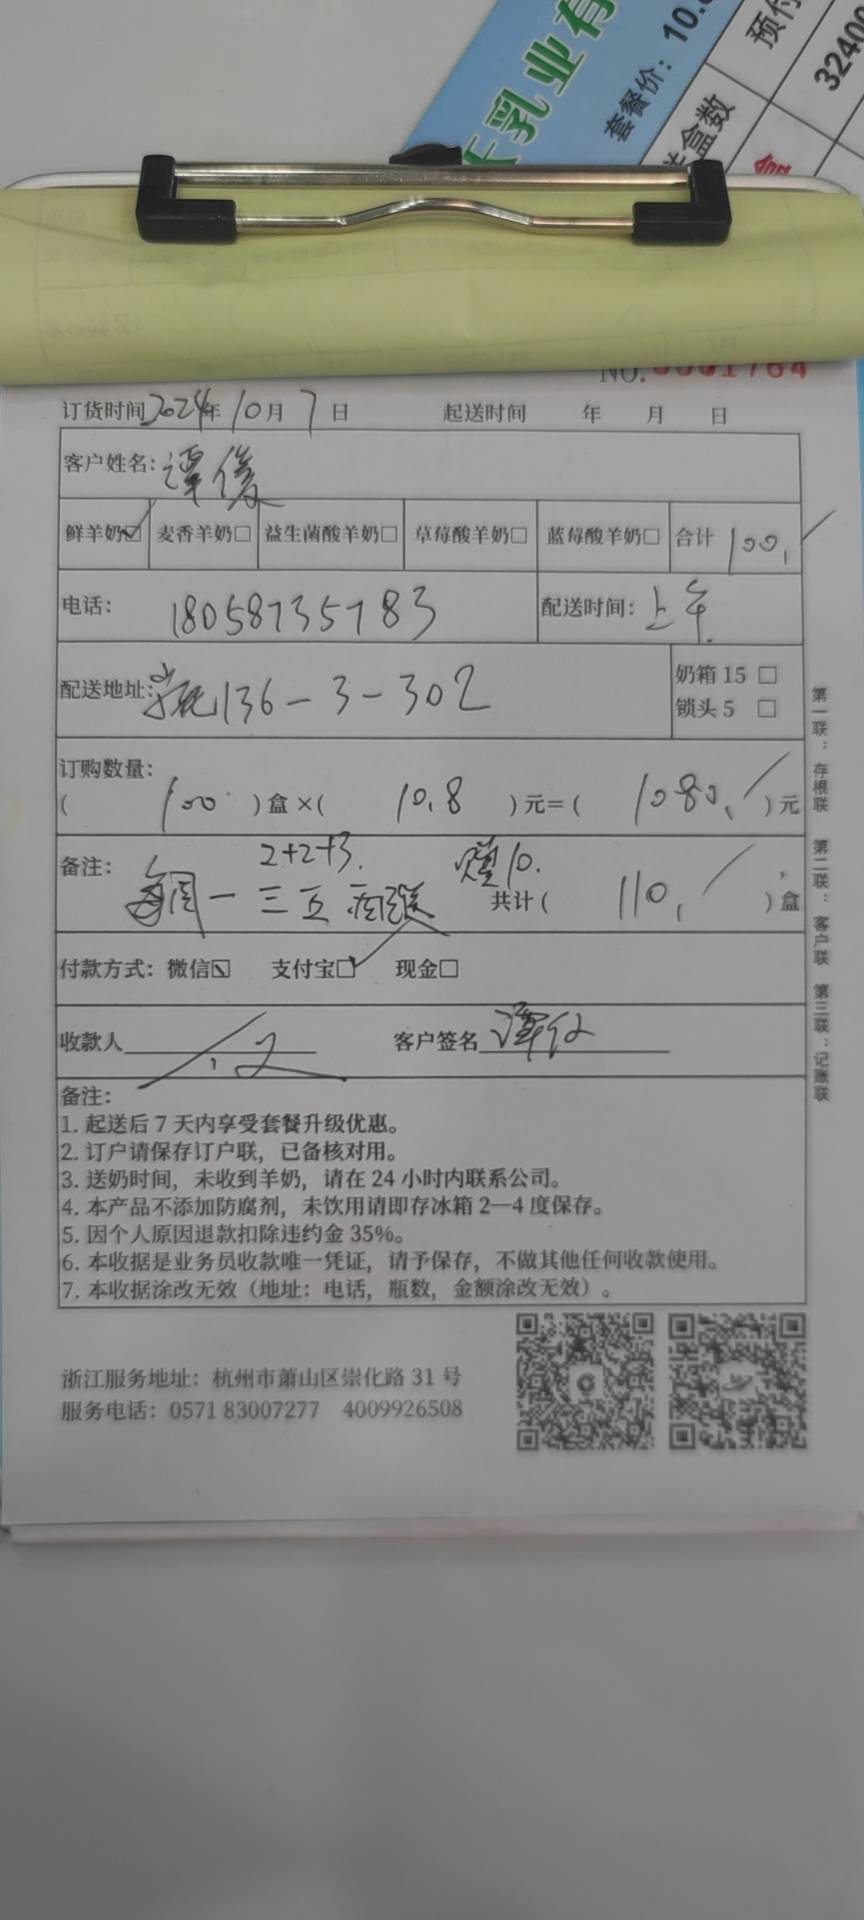 乳业有
套餐价：10.
预付
3240
盒数
盒
NO. 0001764
订货时间 2024年 10月 7日 起送时间 年 月 日
客户姓名：谭俊
鲜羊奶☑ 麦香羊奶□ 益生菌酸羊奶□ 草莓酸羊奶□ 蓝莓酸羊奶□ 合计 100.
电话： 18058735783 配送时间：上午
配送地址： 136-3-302 奶箱 15 □
锁头 5 □
订购数量：
( 100 )盒×( 10.8 )元=( 1080. )元
备注： 2+2+3. 赠10.
每周一三五 共计( 110. )盒
付款方式：微信☑ 支付宝□ 现金□
收款人 客户签名 谭俊
备注：
1. 起送后 7 天内享受套餐升级优惠。
2. 订户请保存订户联，已备核对用。
3. 送奶时间，未收到羊奶，请在 24 小时内联系公司。
4. 本产品不添加防腐剂，未饮用请即存冰箱 2—4 度保存。
5. 因个人原因退款扣除违约金 35%。
6. 本收据是业务员收款唯一凭证，请予保存，不做其他任何收款使用。
7. 本收据涂改无效（地址：电话，瓶数，金额涂改无效）。
第一联：存根联 第二联：客户联 第三联：记账联
浙江服务地址：杭州市萧山区崇化路 31 号
服务电话：0571 83007277 4009926508